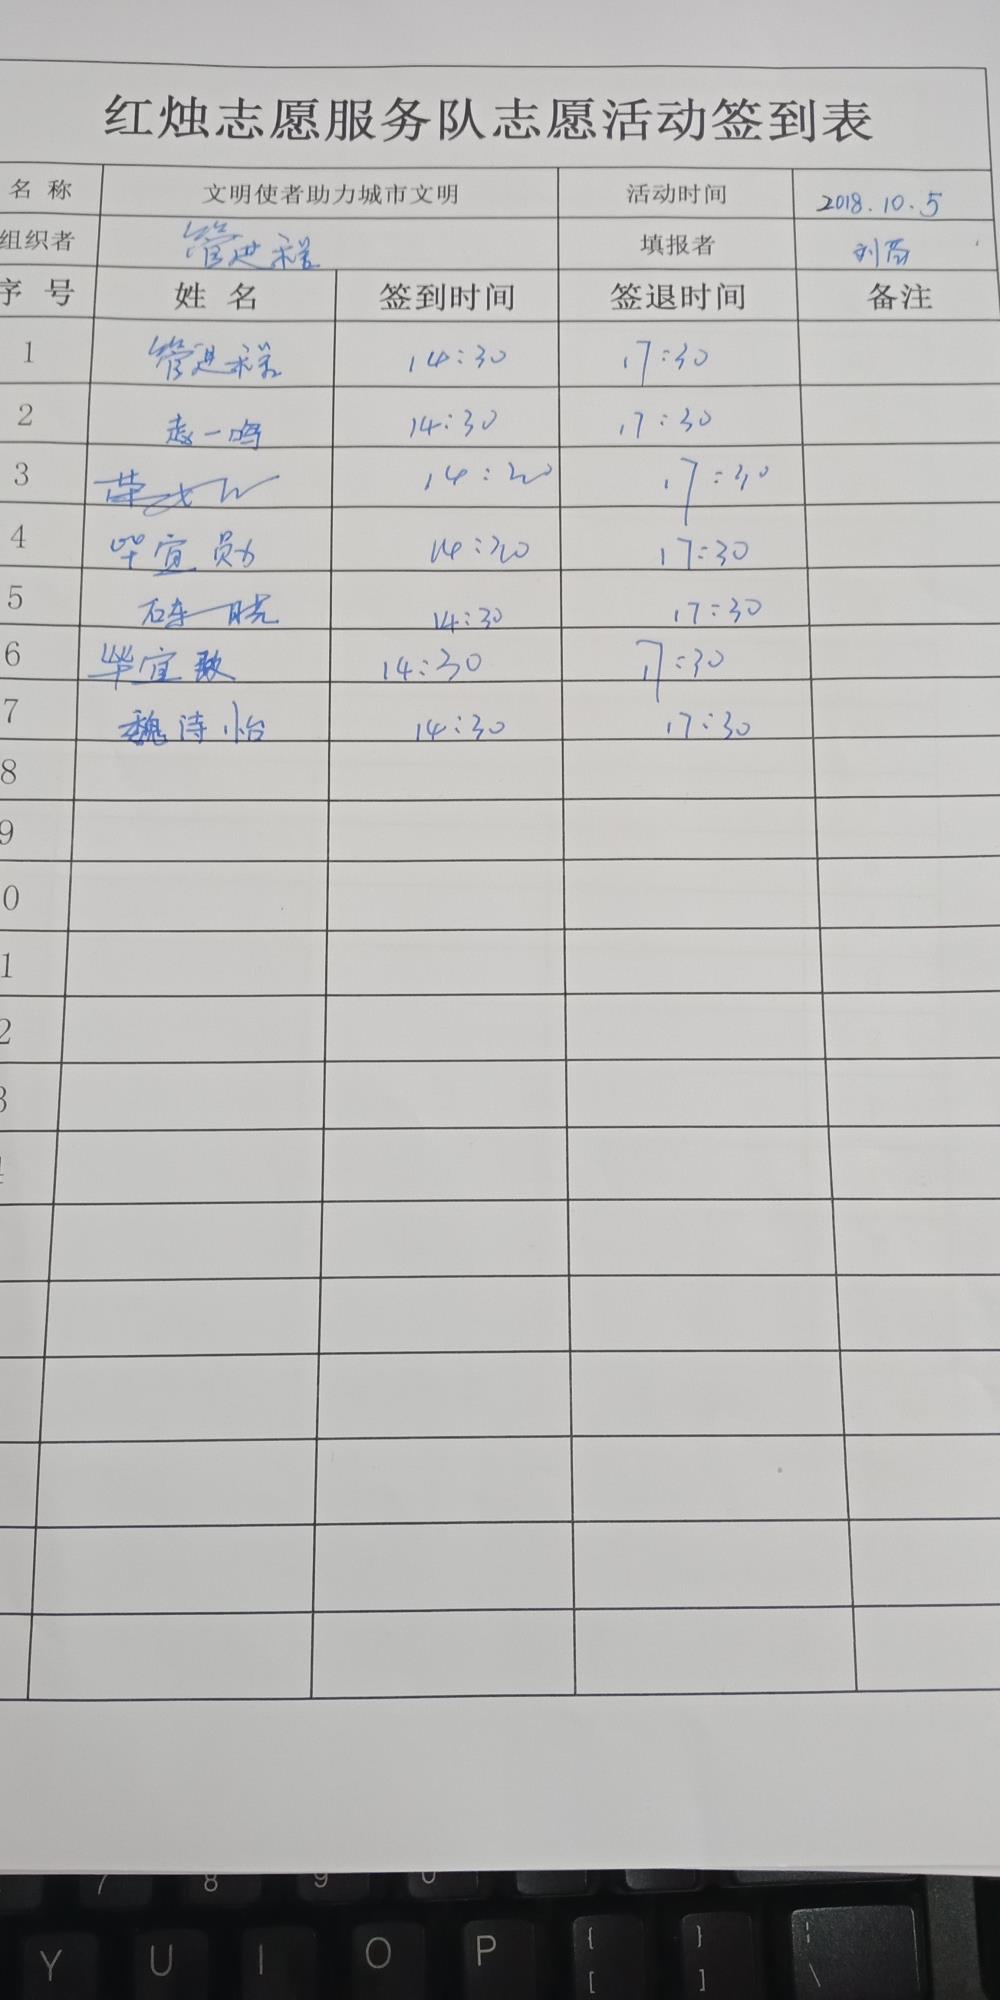 红烛志愿服务队志愿活动签到表
名 称 文明使者助力城市文明 活动时间 2018.10.5
组织者 管进祥 填报者 刘
序 号 姓 名 签到时间 签退时间 备注
1 管进祥 14:30 17:30
2 一鸣 14:30 17:30
3 14:30 17:30
4 毕宜勋 14:30 17:30
5 晓 14:30 17:30
6 毕宜 14:30 17:30
7 魏诗怡 14:30 17:30
8
9
0
1
2
3
7 8 9 0
Y U I O P { [ } ] \